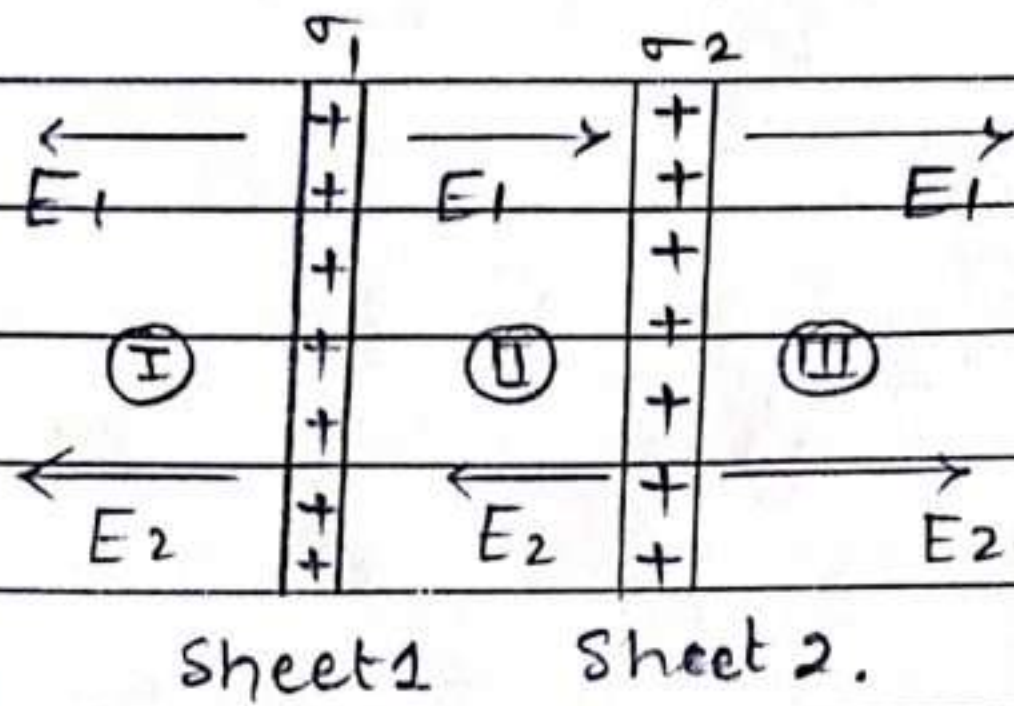 σ1 σ2
+ +
+ +
E1 E1 E1
+ +
+ +
I II III
+ +
+ +
E2 E2 E2
+ +
Sheet1 Sheet 2.